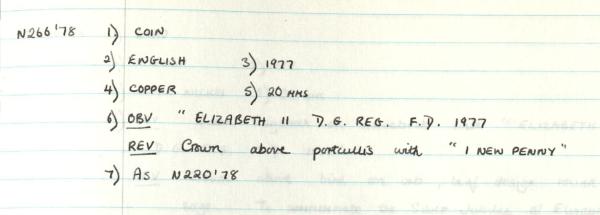 N266'78 1) COIN
2) ENGLISH 3) 1977
4) COPPER 5) 20 MMS
6) OBV " ELIZABETH II D.G. REG. F.D. 1977
REV Crown above portcullis with "1 NEW PENNY"
7) As N220'78